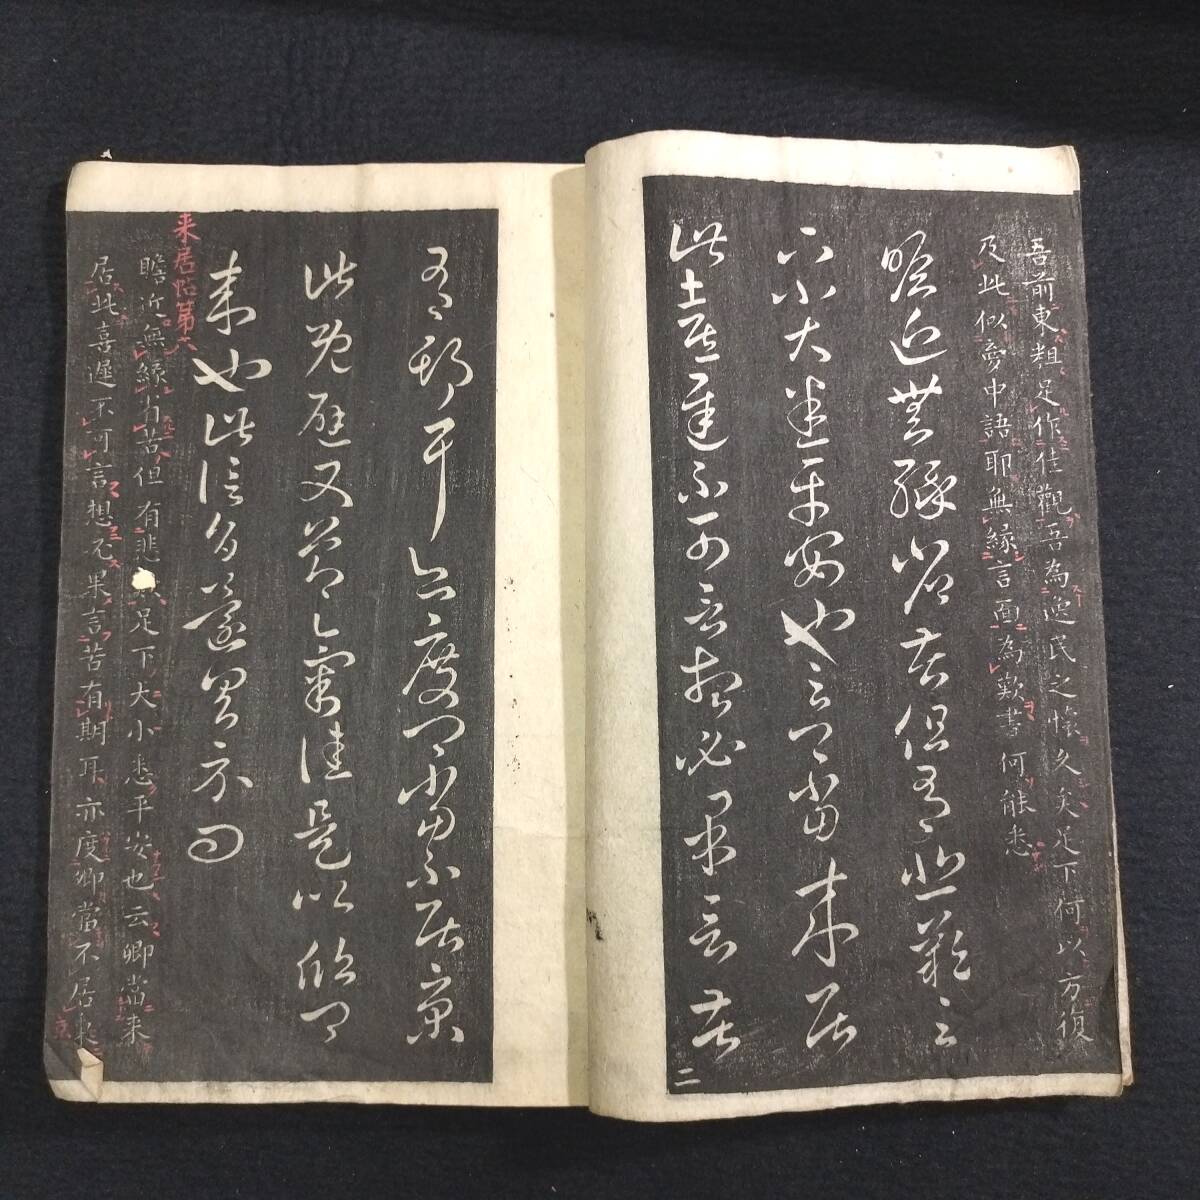 吾前東粗足作佳觀吾為逸民之懷久矣足下何以方復
及此似夢中語耶無縁言面為歎書何能悉
瞻近無緣省苦但有悲歎足
下小大悉平安也云卿當来居
此喜遲不可言想必果言苦
二
有期耳亦度卿當不居京
此既避又節氣佳是以欣卿
来也此信旨還具示問
来居帖第六
瞻近無縁省苦但有悲足下大小悉平安也云卿當来
居此喜遲不可言想必果言苦有期耳亦度卿當不居